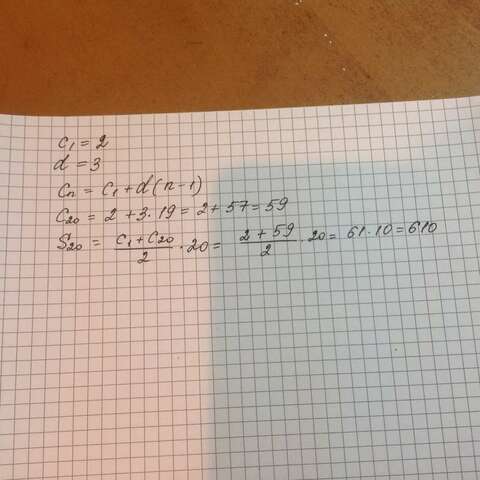 c₁ = 2
d = 3
cₙ = c₁ + d(n-1)
c₂₀ = 2 + 3·19 = 2 + 57 = 59
S₂₀ = (c₁ + c₂₀)/2 · 20 = (2 + 59)/2 · 20 = 61·10 = 610